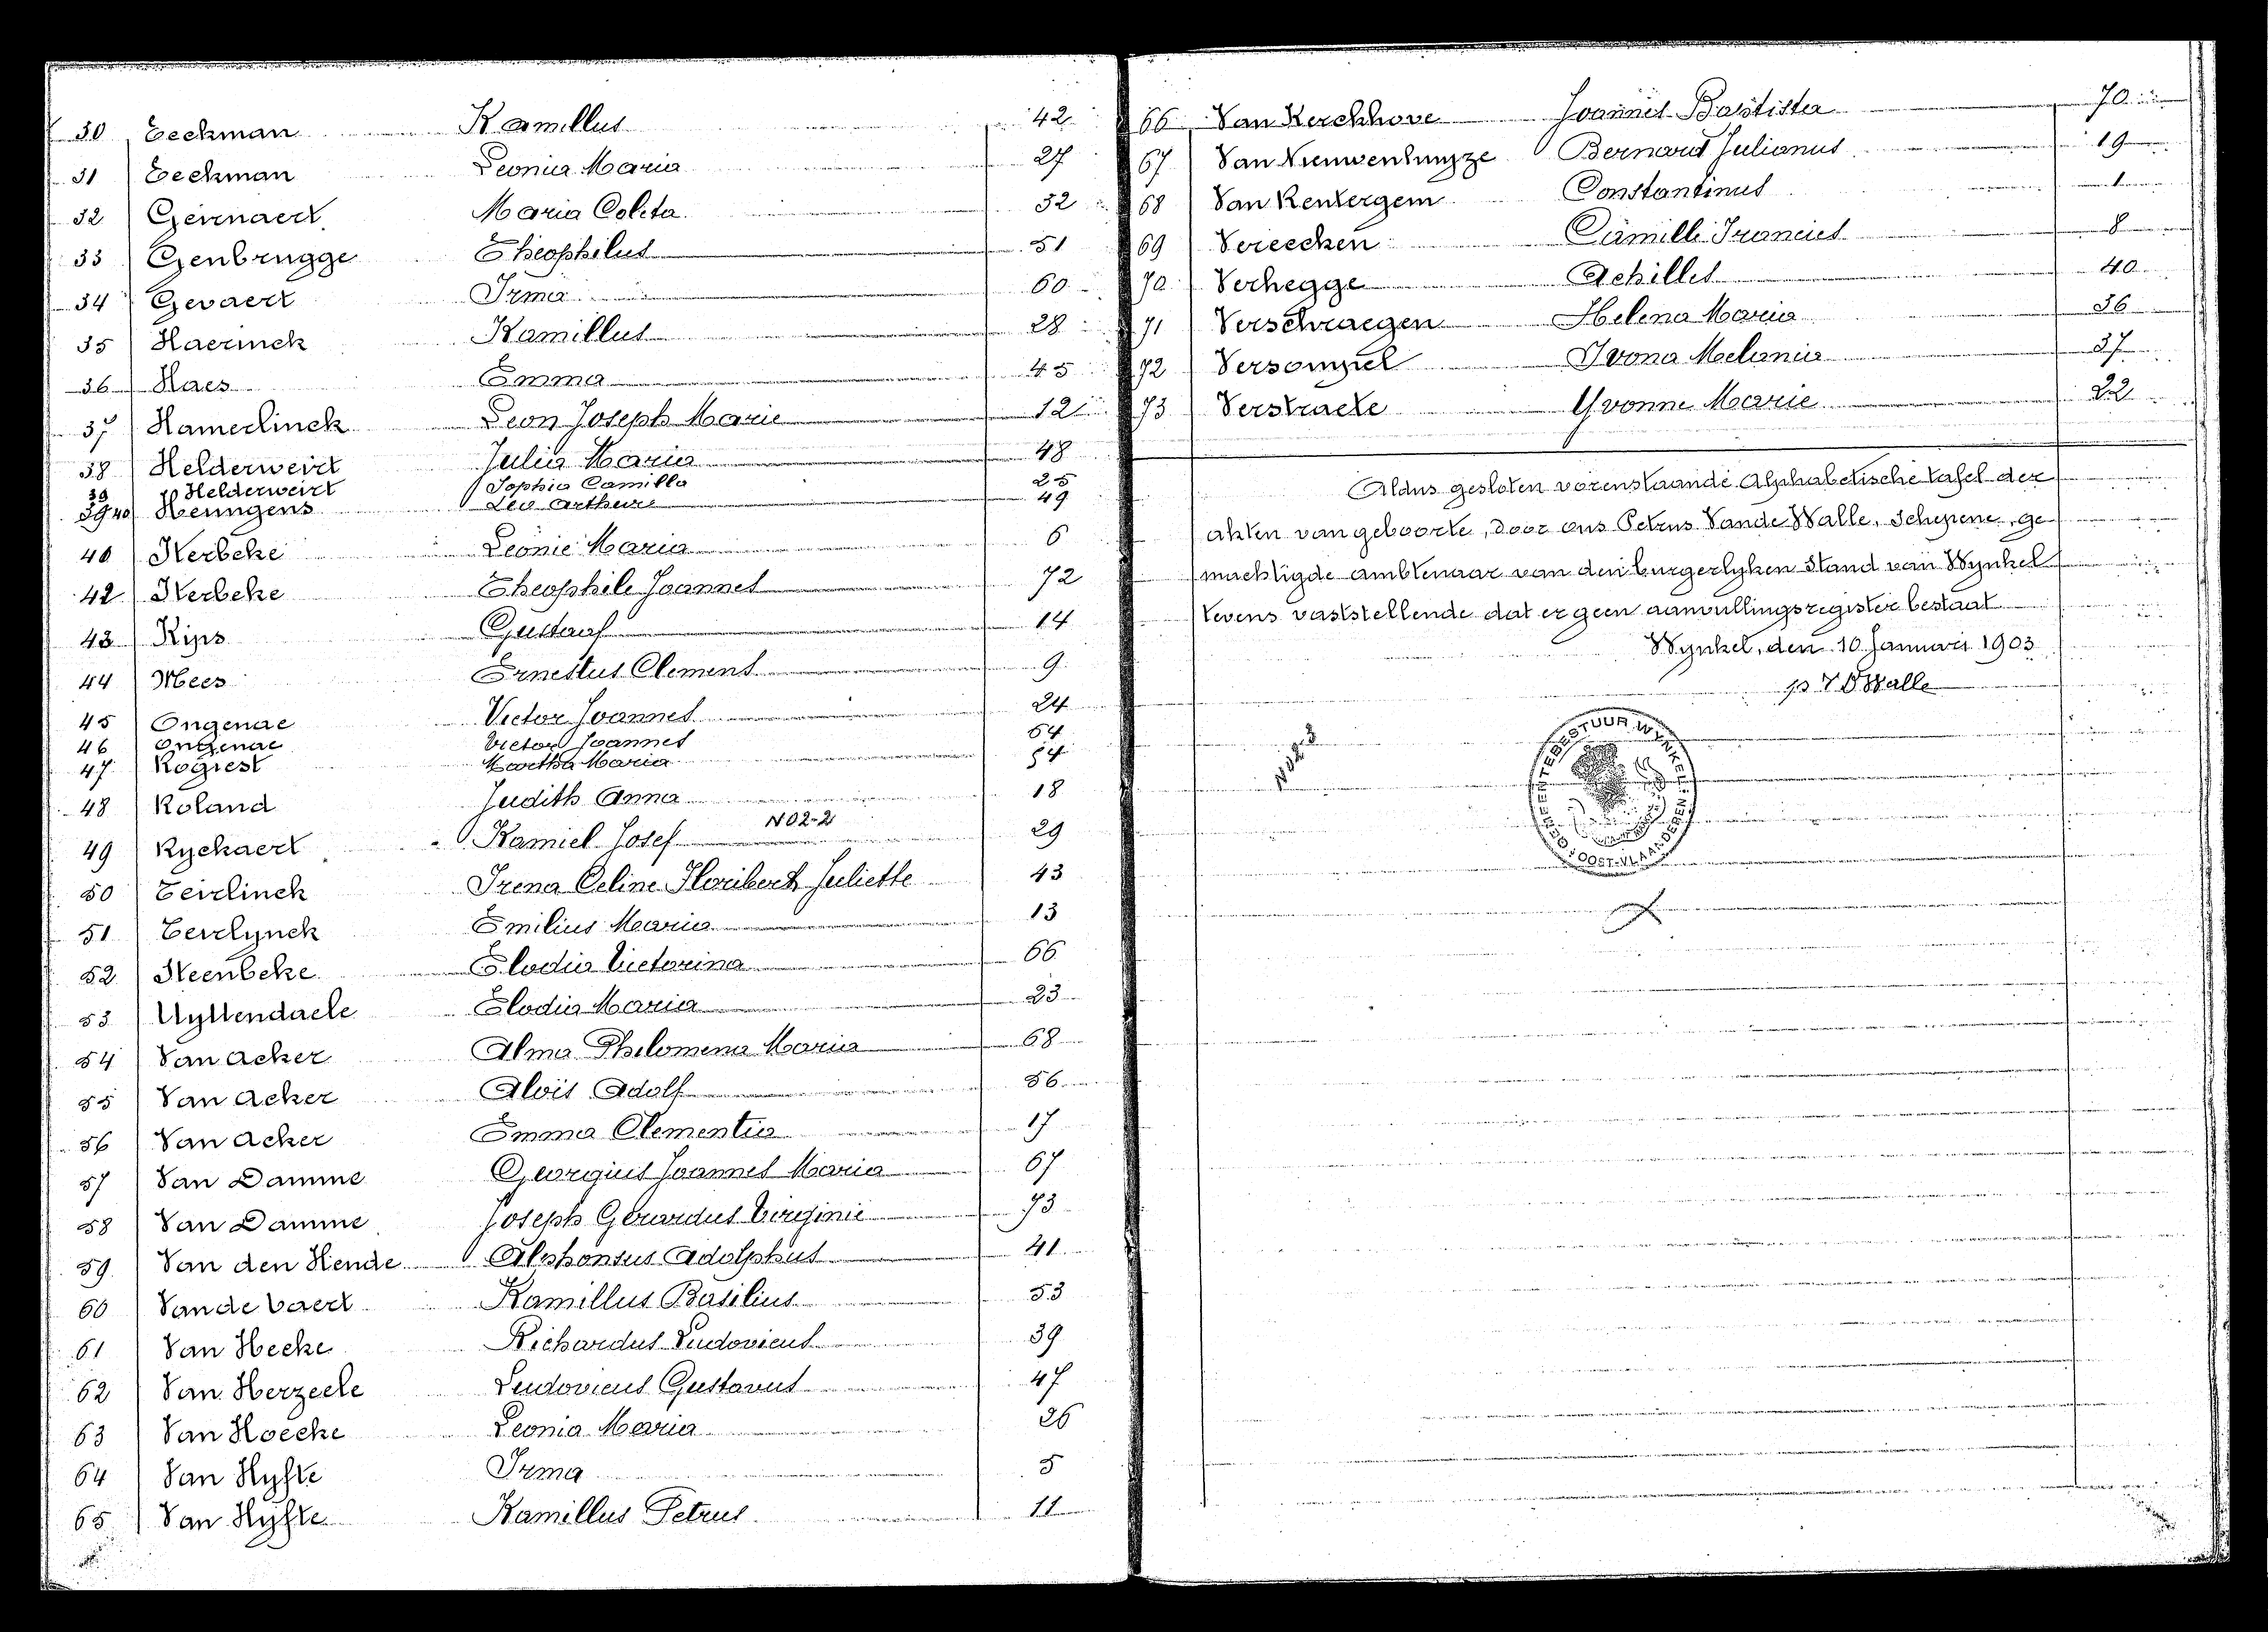 30 Eeckman Kamillus 42
31 Eeckman Leonia Maria 27
32 Geirnaert Maria Coleta 32
33 Genbrugge Theophilus 51
34 Gevaert Irma 60
35 Haerinck Kamillus 28
36 Haes Emma 45
37 Hamerlinck Leon Joseph Marie 12
38 Helderweirt Julia Maria 48
39 Helderweirt Sophia Camilla 25
40 Hennigens Leo Arthur 49
Nerbeke Leonie Maria 6
42 Nerbeke Theophile Joannes 72
43 Kips Gustaaf 14
44 Mees Ernestus Clement 9
45 Ongenae Victor Joannes 24
46 Ongenae Victor Joannes 64
47 Rogiest Martha Maria 54
48 Roland Judith Anna 18
N02-2
49 Ryckaert Kamiel Josef 29
50 Teirlinck Irena Celine Floribert Juliette 43
51 Teirlynck Emilius Maria 13
52 Steenbeke Elodia Victorina 66
53 Uyttendaele Elodia Maria 23
54 Van Acker Alma Philomena Maria 68
55 Van Acker Alois Adolf 56
56 Van Acker Emma Clementia 17
57 Van Damme Georgius Joannes Maria 67
58 Van Damme Joseph Gerardus Virginie 73
59 Van den Hende Alphonsus Adolphus 41
60 Vande Vaert Kamillus Basilius 53
61 Van Hecke Richardus Ludovicus 39
62 Van Herzeele Ludovicus Gustavus 47
63 Van Hoecke Leonia Maria 26
64 Van Hyfte Irma 5
65 Van Hyfte Kamillus Petrus 11
66 Van Kerckhove Joannes Baptista 70
67 Van Nieuwenhuyze Bernard Julianus 19
68 Van Rentergem Constantinus 1
69 Vereecken Camille Francies 8
70 Verhegge Achilles 40
71 Verschraegen Helena Maria 36
72 Versompel Ivona Melania 37
73 Verstraete Yvonne Marie 22
Aldus gesloten vorenstaande Alphabetische tafel der
akten van geboorte, door ons Petrus Vande Walle, Schepene, ge-
machtigde ambtenaar van den burgerlyken Stand van Wynkel
tevens vaststellende dat er geen aanvullingsregister bestaat
Wynkel, den 10 Januari 1903
p V D Walle
GEMEENTEBESTUUR WYNKEL
OOST-VLAANDEREN